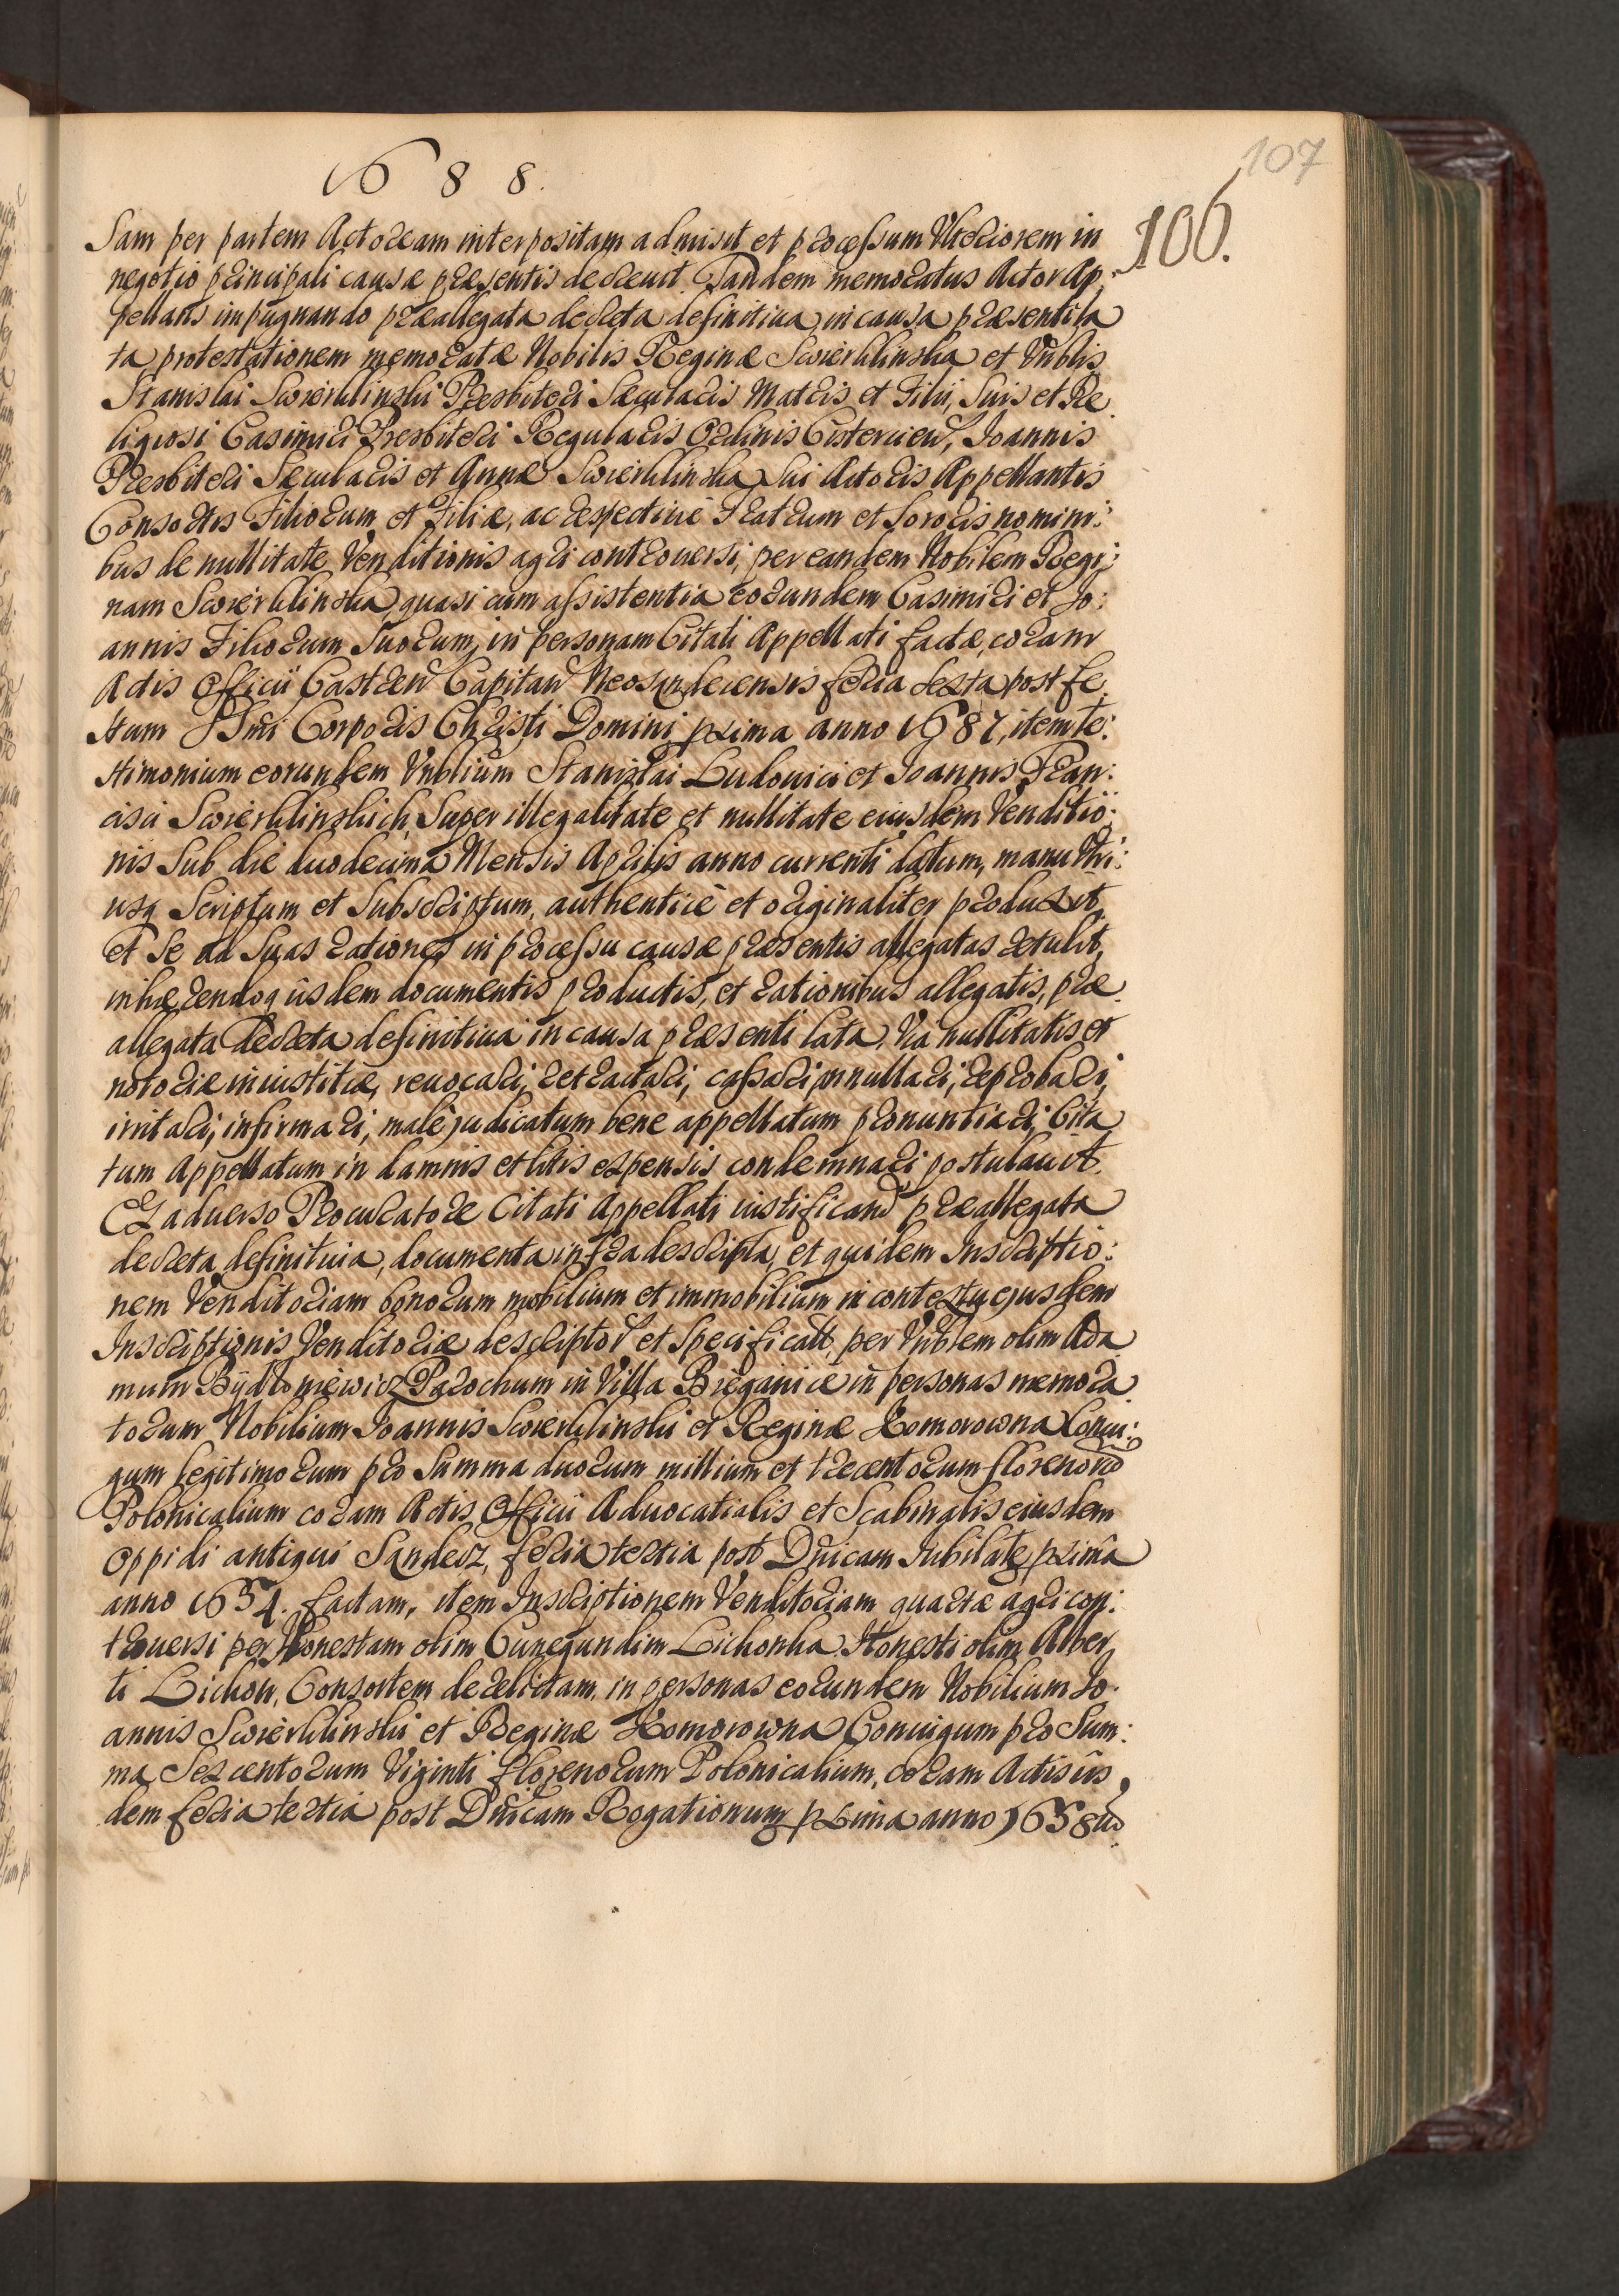 1688.
107
106.
sam per partem Actoream interpositam admisit et processum Vlteriorem in
negotio principali causæ præsentis decreuit. Tandem memoratus Actor Ap,
pellans impugnando præallegata decreta definitiua in causa præsenti la
ta protestationem memoratæ Nobilis Reginæ Swierklinska et Vnblis
Stanislai Swierklinski Presbiteri Sæcularis Matris et Filii, Suis et Re
ligiosi Casimiri Presbiteri Regularis Ordinis Cistercien, Joannis
Presbiteri Sæcularis et Annæ Swierklinska Sui Actoris Appellantis
Consortis Filiorum et Filiæ, ac respectiue Fratrum et Sororis nomini:
bus de nullitate Venditionis agri controuersi, per eandem Nobilem Regi:
nam Swierklinska quasi cum assistentia eorundem Casimiri et Jo:
annis Filiorum Suorum, in personam Citati Appellati factæ, coram
Actis Officii Castren Capitan Neosandecensis feria sexta post fe
stum SSmi Corporis Christi Domini prima anno 1687, item te:
stimonium eorundem Vnblium Stanislai Ludouici et Joannis Fran:
cisci Swierklinskich, Super illegalitate et nullitate eiusdem Venditio:
nis Sub die duodecima Mensis Aprilis anno currenti datum, manu Vtri:
usq Scriptum et Subscriptum, authentice et originaliter produxit,
et Se ad Suas rationes in processu causæ præsentis allegatas retulit,
inhærendoq iisdem documentis productis, et rationibus allegatis, præ
allegata Decreta definitiua in causa præsenti lata, Via nullitatis et
notoriæ iniustitiæ, reuocari, retractari, cassari, annullari, reprobari,
irritari, infirmari, male judicatum bene appellatum pronuntiari, Cita
tum Appellatum in damnis et litis expensis condemnari postulauit.
Ex aduerso Procuratore Citati Appellati iustificand præallegata
decreta definitiua, documenta infra descripta, et quidem Inscriptio:
nem Venditoriam bonorum mobilium et immobilium in contextu ejusdem
Inscriptionis Venditoriæ descriptor et Specificat, per Vnblem olim Ada
mum Bydłoniewicz Parochum in Villa Biegonice in personas memora
torum Nobilium Joannis Swierklinski et Reginæ Komorowna Coniu:
gum legitimorum pro Summa duorum millium et trecentorum florenorũ
Polonicalium coram Actis Officii Aduocatialis et Scabinalis eiusdem
Oppidi antiqui Sandecz, feria tertia post Dñicam Jubilate prima
anno 1654. factam, item Inscriptionem Venditoriam quartæ agri con:
trouersi per Honestam olim Cunegundim Lichonka Honesti olim Alber,
ti Lichon, Consortem derelictam, in personas eorundem Nobilium Jo
annis Swierklinski et Reginæ Komorowna Coniugum pro Sum:
ma Sexcentorum Viginti florenorum Polonicalium, coram Actis iis,
dem feria tertia post Dñicam Rogationum prima anno 1658vo